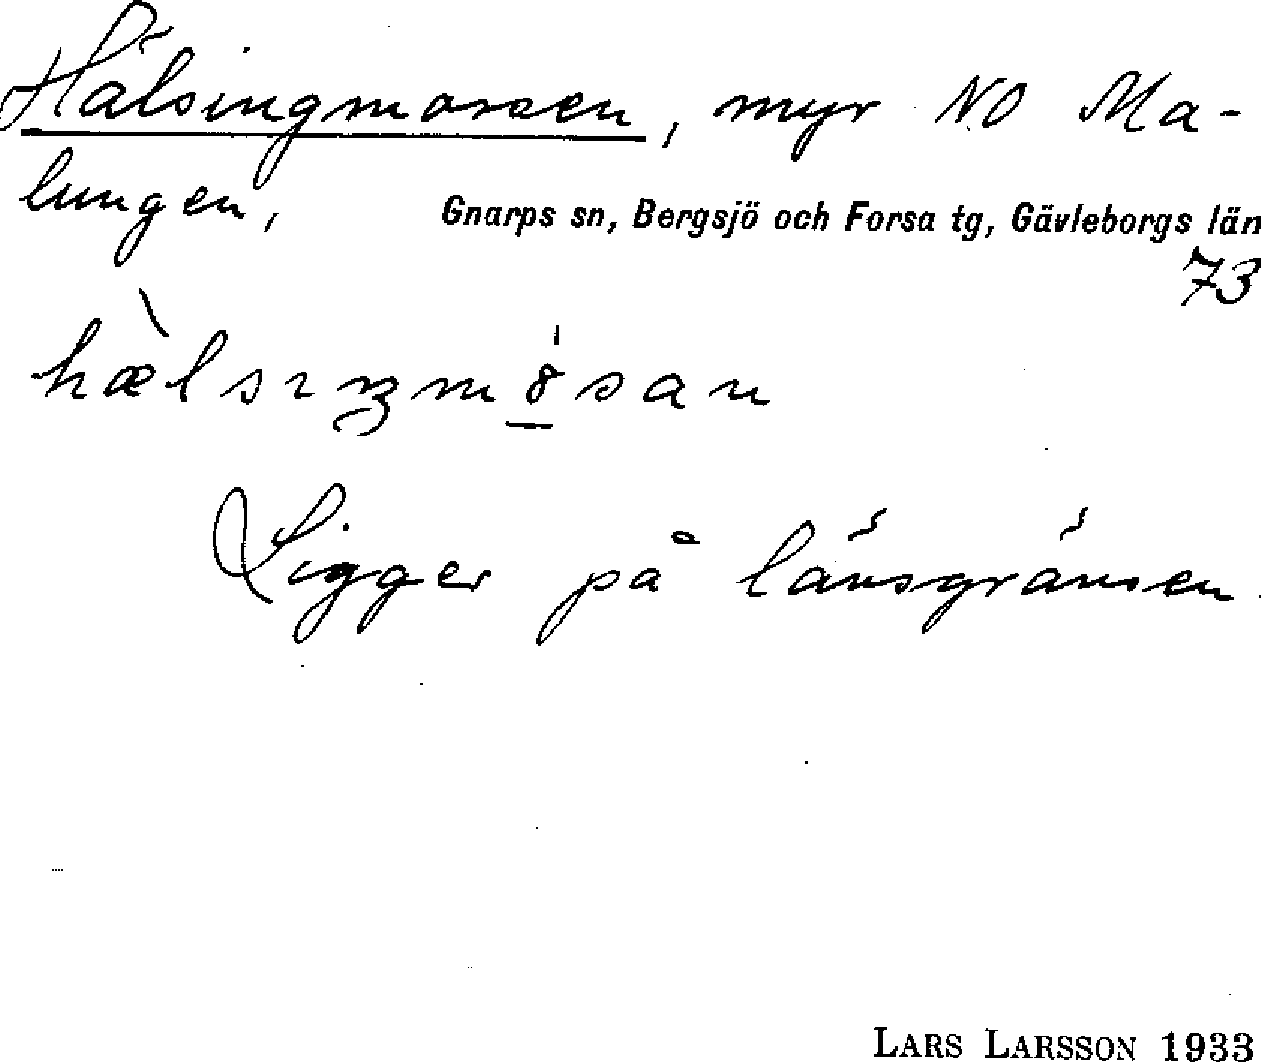 Hälsingmossen, myr NO Ma-
lungen, Gnarps sn, Bergsjö och Forsa tg, Gävleborgs län
73
Ligger på länsgränsen
LARS LARSSON 1933